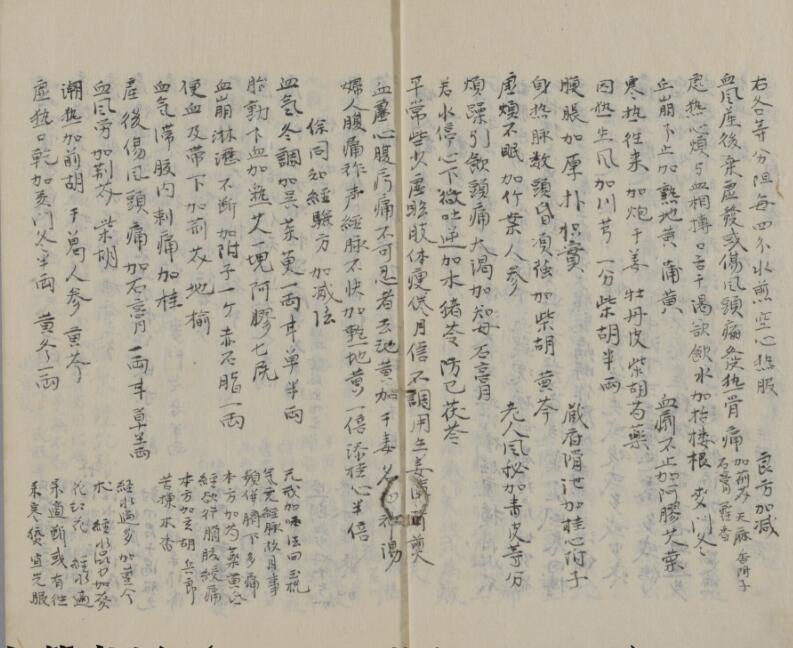 右各等分 每四 水煎空心熱服 良方加減
血風產後棄虛發或傷風頭痛發熱骨痛加荊芥天麻香附子石膏藿香
虛熱心煩与血相搏口舌干渴欲飲水加栝樓根 麥門冬
血崩下止加熟地黃 蒲黃 血漏不止加阿膠艾葉
寒熱往来加炮干姜牡丹皮柴胡芍藥
因熱生風加川芎一分柴胡半兩
腹脹加厚朴枳實 臟 滑池加桂心附子
身热脉数頭昏項强加柴胡黃芩
虛煩不眠加竹葉人參 老人風秘加青皮等分
煩躁引飲頭痛大渴加知母石膏
若水停心下微吐逆加木猪苓防已茯苓
平常些少虛 肢体瘦倦月信不調用生姜 煎
血虛心腹疞痛不可忍者去地黃加干姜名 湯
婦人腹痛 声經脉不快加乾地黃一倍添桂心半倍
徐同知經驗方加減法
血氣冬調加吴茱萸一兩甘草半兩
胎動下血加 艾一塊阿膠七
血崩淋瀝不断加附子一ケ赤石脂一兩
便血及帶下加荊芥地榆
血氣滞腹内刺痛加桂
產後傷風頭痛加石膏一兩甘草 兩
血風勞加荊芥柴胡
潮热加前胡干葛人參黃芩
虛热口乾加麥門冬半兩 黃芩一兩
元戎加 法曰
氣 經脉 月事
頻併臍下多痛
本方加芍藥黃
經欲行臍腹絞痛
本方加玄胡
苦楝木香
經水過多加黃今
朮 經水 少加葵
花紅花 經水適
来適断或有往
来寒熱宜先服